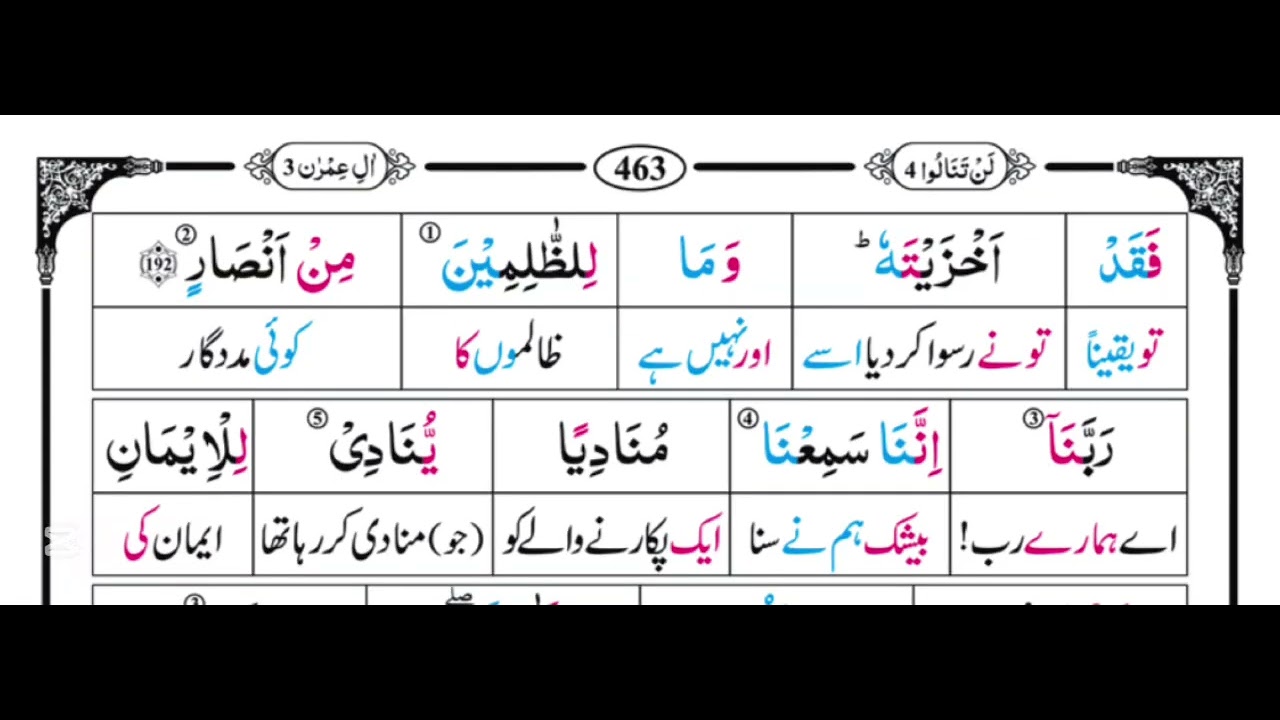 لَنْ تَنَالُوا 4 463 اٰلِ عِمْرٰن 3
فَقَدْ اَخْزَيْتَهٗ ؕ وَ مَا لِلظّٰلِمِيْنَ ① مِنْ اَنْصَارٍ ② 192
تو یقیناً تو نے رسوا کر دیا اسے اور نہیں ہے ظالموں کا کوئی مددگار
رَبَّنَاۤ ③ اِنَّنَا سَمِعْنَا ④ مُنَادِيًا يُّنَادِيْ ⑤ لِلْاِيْمَانِ
اے ہمارے رب! بیشک ہم نے سنا ایک پکارنے والے کو (جو) منادی کر رہا تھا ایمان کی